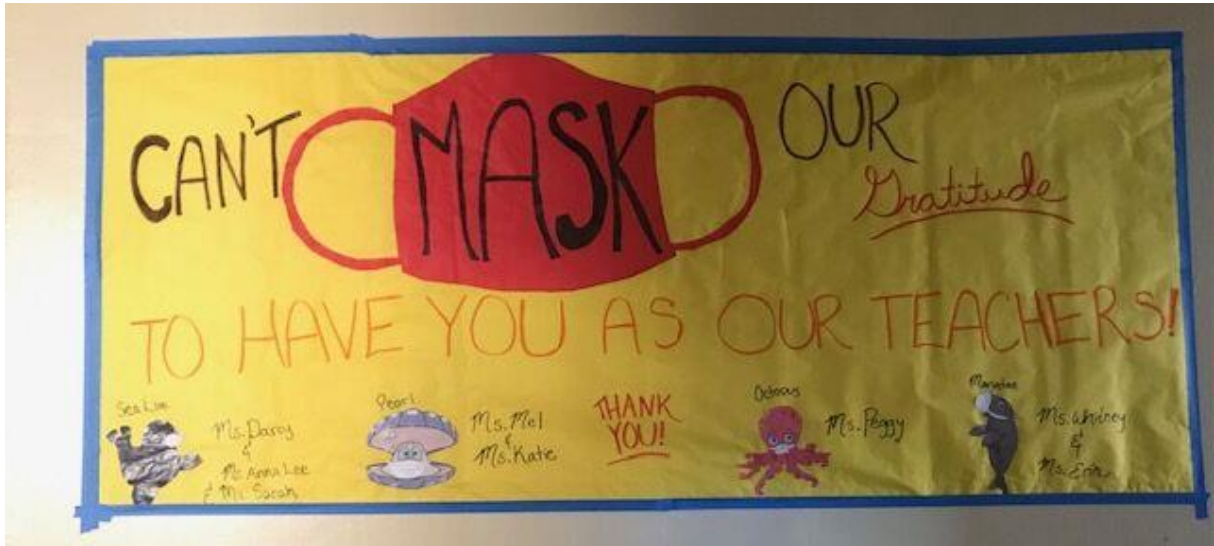 CAN'T MASK OUR
Gratitude
TO HAVE YOU AS OUR TEACHERS!
Sea Lion
Ms. Darcy
&
Ms. Anna Lee
& Ms. Sarah
Pearl
Ms. Mel
&
Ms. Katie
THANK
YOU!
Octopus
Ms. Peggy
Manatee
Ms. Whitney
&
Ms. Erin